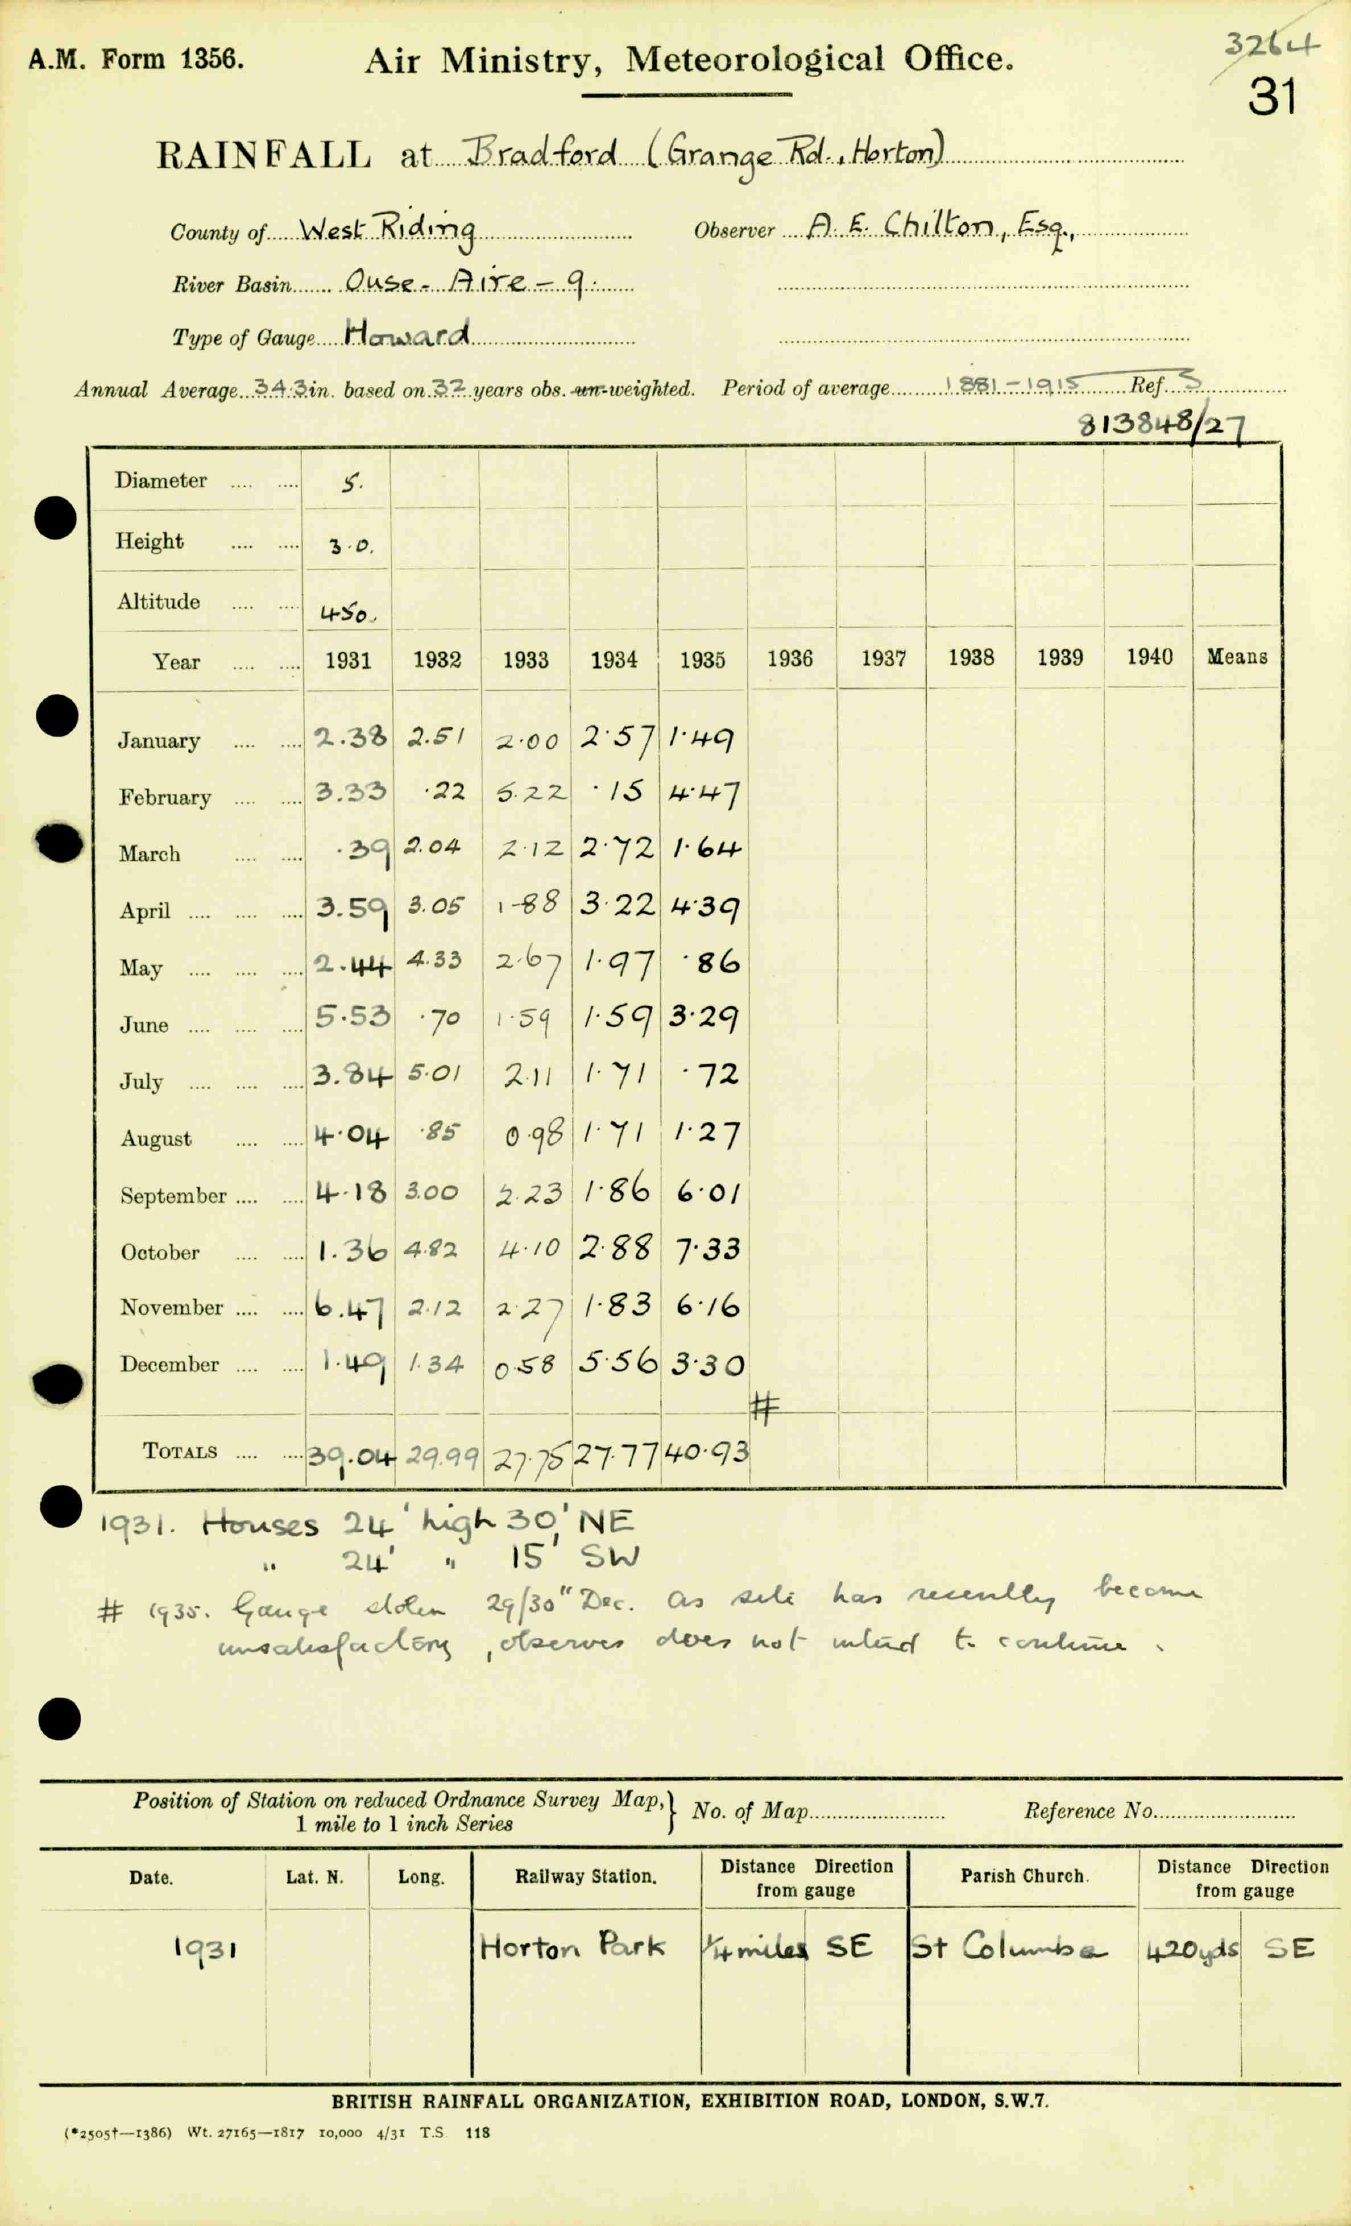 3264
A.M. Form 1356. Air Ministry, Meteorological Office.
31
RAINFALL at Bradford (Grange Rd., Horton)
County of West Riding Observer A. E. Chilton, Esq.,
River Basin Ouse - Aire - 9.
Type of Gauge Howard
Annual Average 34.3 in. based on 32 years obs. un-weighted. Period of average 1881-1915 Ref. S
813848/27
Diameter 5.
Height 3.0.
Altitude 450.
Year 1931 1932 1933 1934 1935 1936 1937 1938 1939 1940 Means
January 2.38 2.51 2.00 2.57 1.49
February 3.33 .22 5.22 .15 4.47
March .39 2.04 2.12 2.72 1.64
April 3.59 3.05 1.88 3.22 4.39
May 2.44 4.33 2.67 1.97 .86
June 5.53 .70 1.59 1.59 3.29
July 3.84 5.01 2.11 1.71 .72
August 4.04 .85 0.98 1.71 1.27
September 4.18 3.00 2.23 1.86 6.01
October 1.36 4.82 4.10 2.88 7.33
November 6.47 2.12 2.27 1.83 6.16
December 1.49 1.34 0.58 5.56 3.30
#
TOTALS 39.04 29.99 27.75 27.77 40.93
1931. Houses 24' high 30,' NE
" 24' " 15' SW
# 1935. Gauge stolen 29/30" Dec. As site has recently become
unsatisfactory, observer does not intend to continue.
Position of Station on reduced Ordnance Survey Map, } No. of Map Reference No.
1 mile to 1 inch Series
Date. Lat. N. Long. Railway Station. Distance Direction from gauge Parish Church. Distance Direction from gauge
1931 Horton Park 1/4 miles SE St Columba 420yds SE
BRITISH RAINFALL ORGANIZATION, EXHIBITION ROAD, LONDON, S.W.7.
(*2505†—1386) Wt. 27165—1817 10,000 4/31 T.S. 118